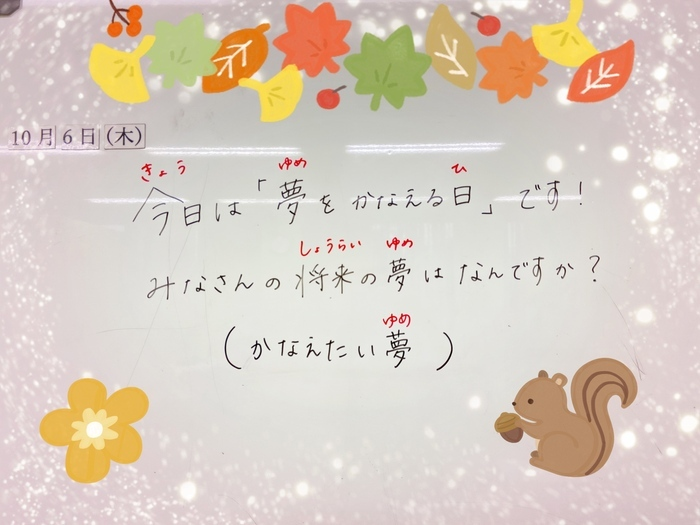 10月6日(木)
きょう ゆめ ひ
今日は「夢をかなえる日」です!
しょうらい ゆめ
みなさんの将来の夢はなんですか?
ゆめ
(かなえたい夢)